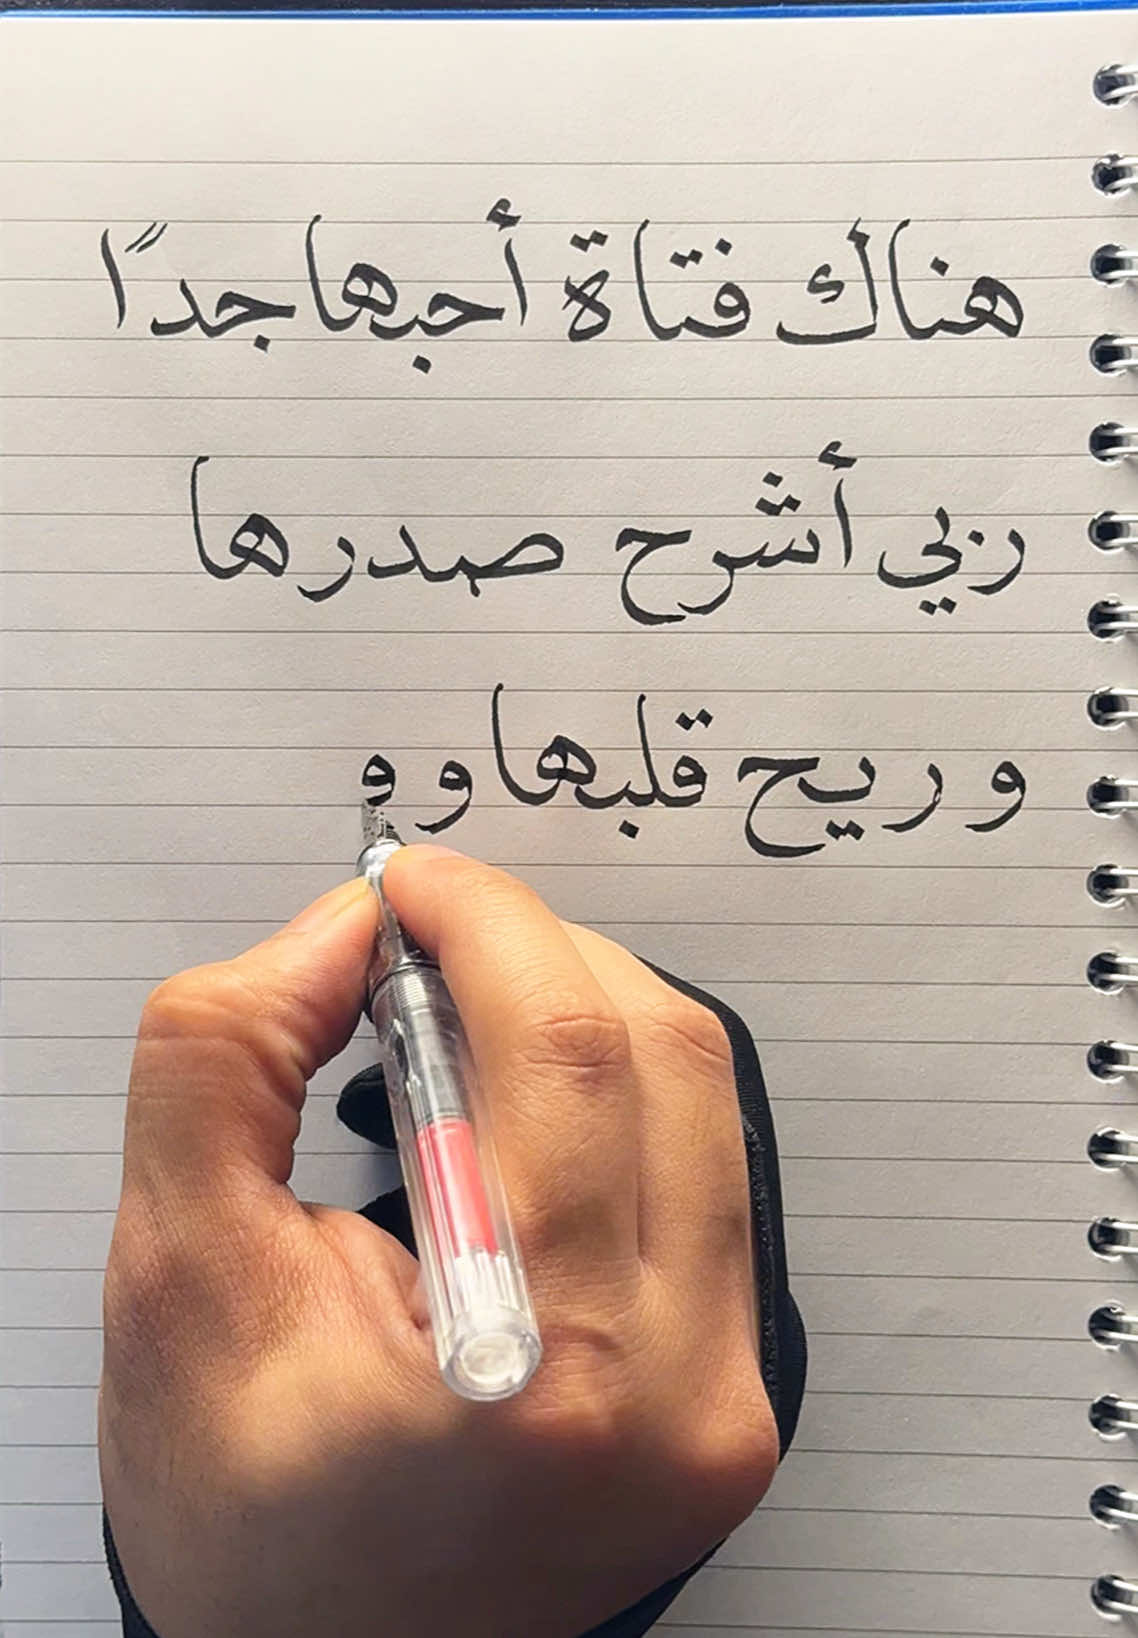 هناك فتاة أحبها جدًا
ربي أشرح صدرها
و ريح قلبها و و